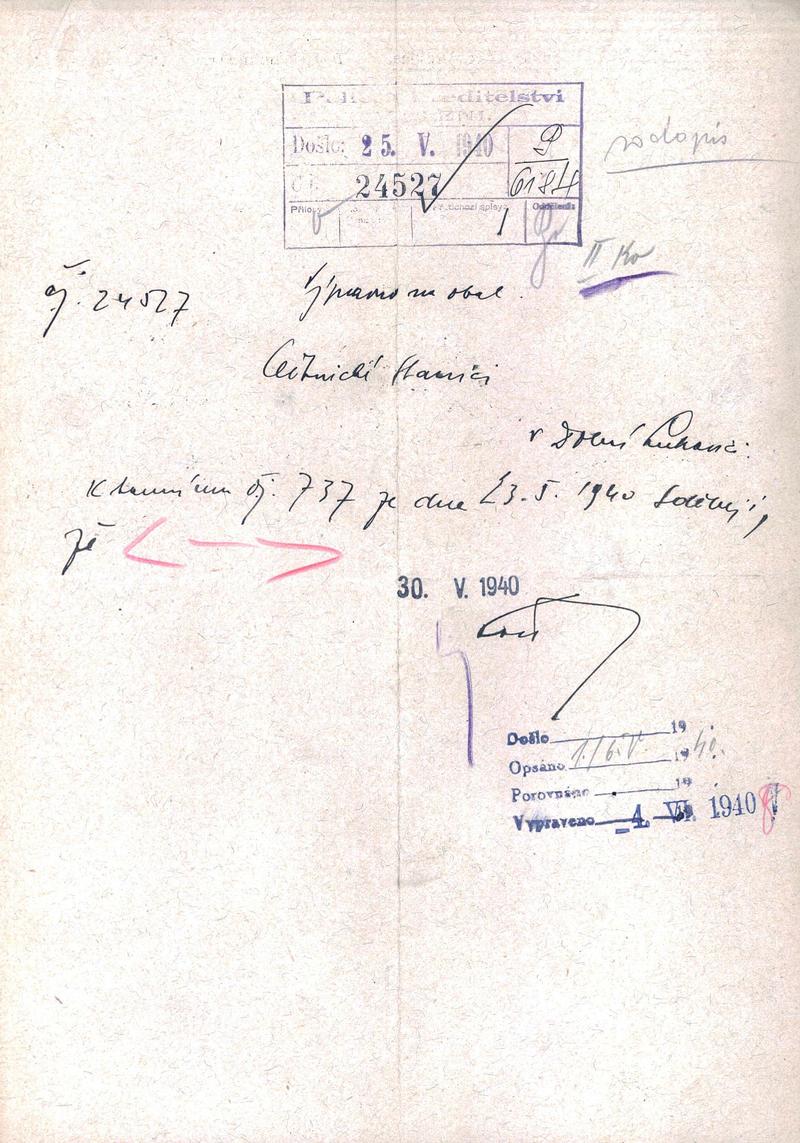 Polic ředitelství
ZNI.
Došlo: 25. V. 1940
P
6184
Čj. 24527
Přílohy
1
Oddělení
rodopis
II Ko
čj. 24527
Výpravno na obal.
Četnické stanici
v Dolní Lukavici.
K tamnímu čj. 737 ze dne 23. 5. 1940 sděluji,
že
30. V. 1940
Došlo 19
Opsáno 1./6. 19 40.
Porovnáno 19
Vypraveno 4. VI. 1940